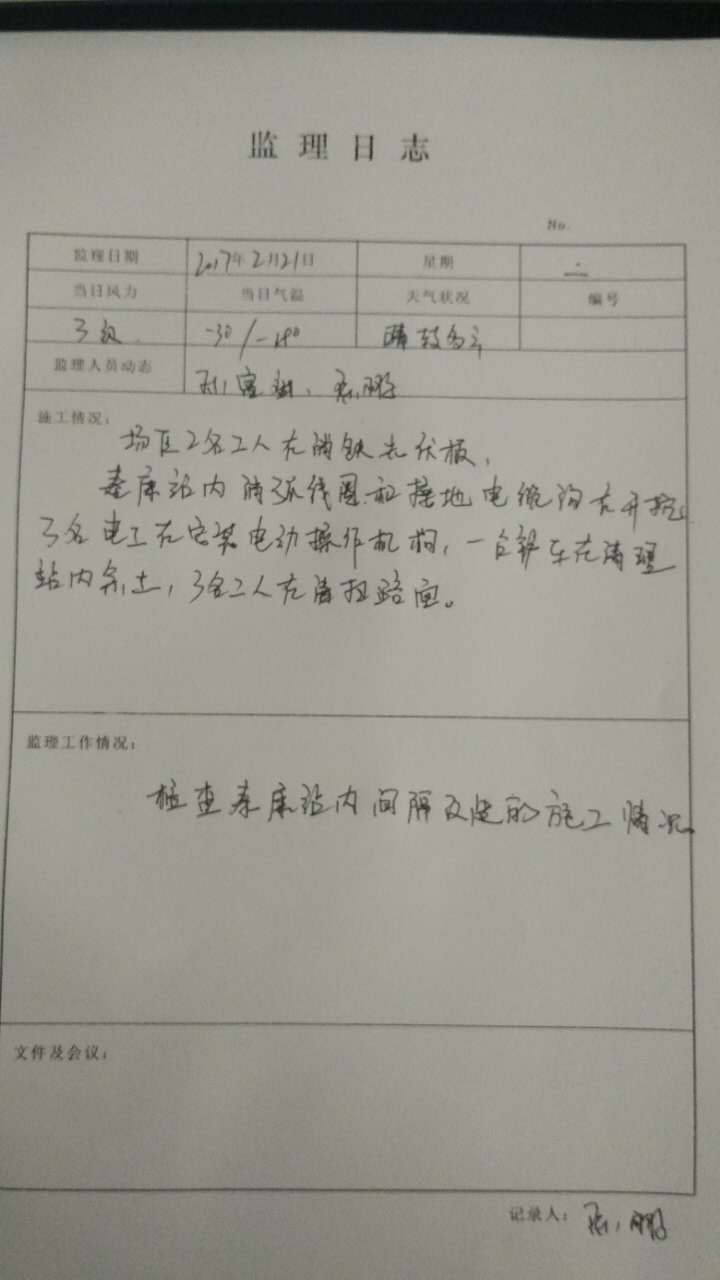 监理日志
No.
监理日期 2017年2月21日 星期 二
当日风力 当日气温 天气状况 编号
3级 -3°/-14° 晴转多云
监理人员动态
施工情况：
场区2名工人在消缺光伏板，
泰库站内消弧线圈和接地电缆沟在开挖。
3名电工在安装电动操作机构，一台铲车在清理
站内杂土，3名工人在清扫路面。
监理工作情况：
检查泰库站内间隔改造的施工情况。
文件及会议：
记录人：